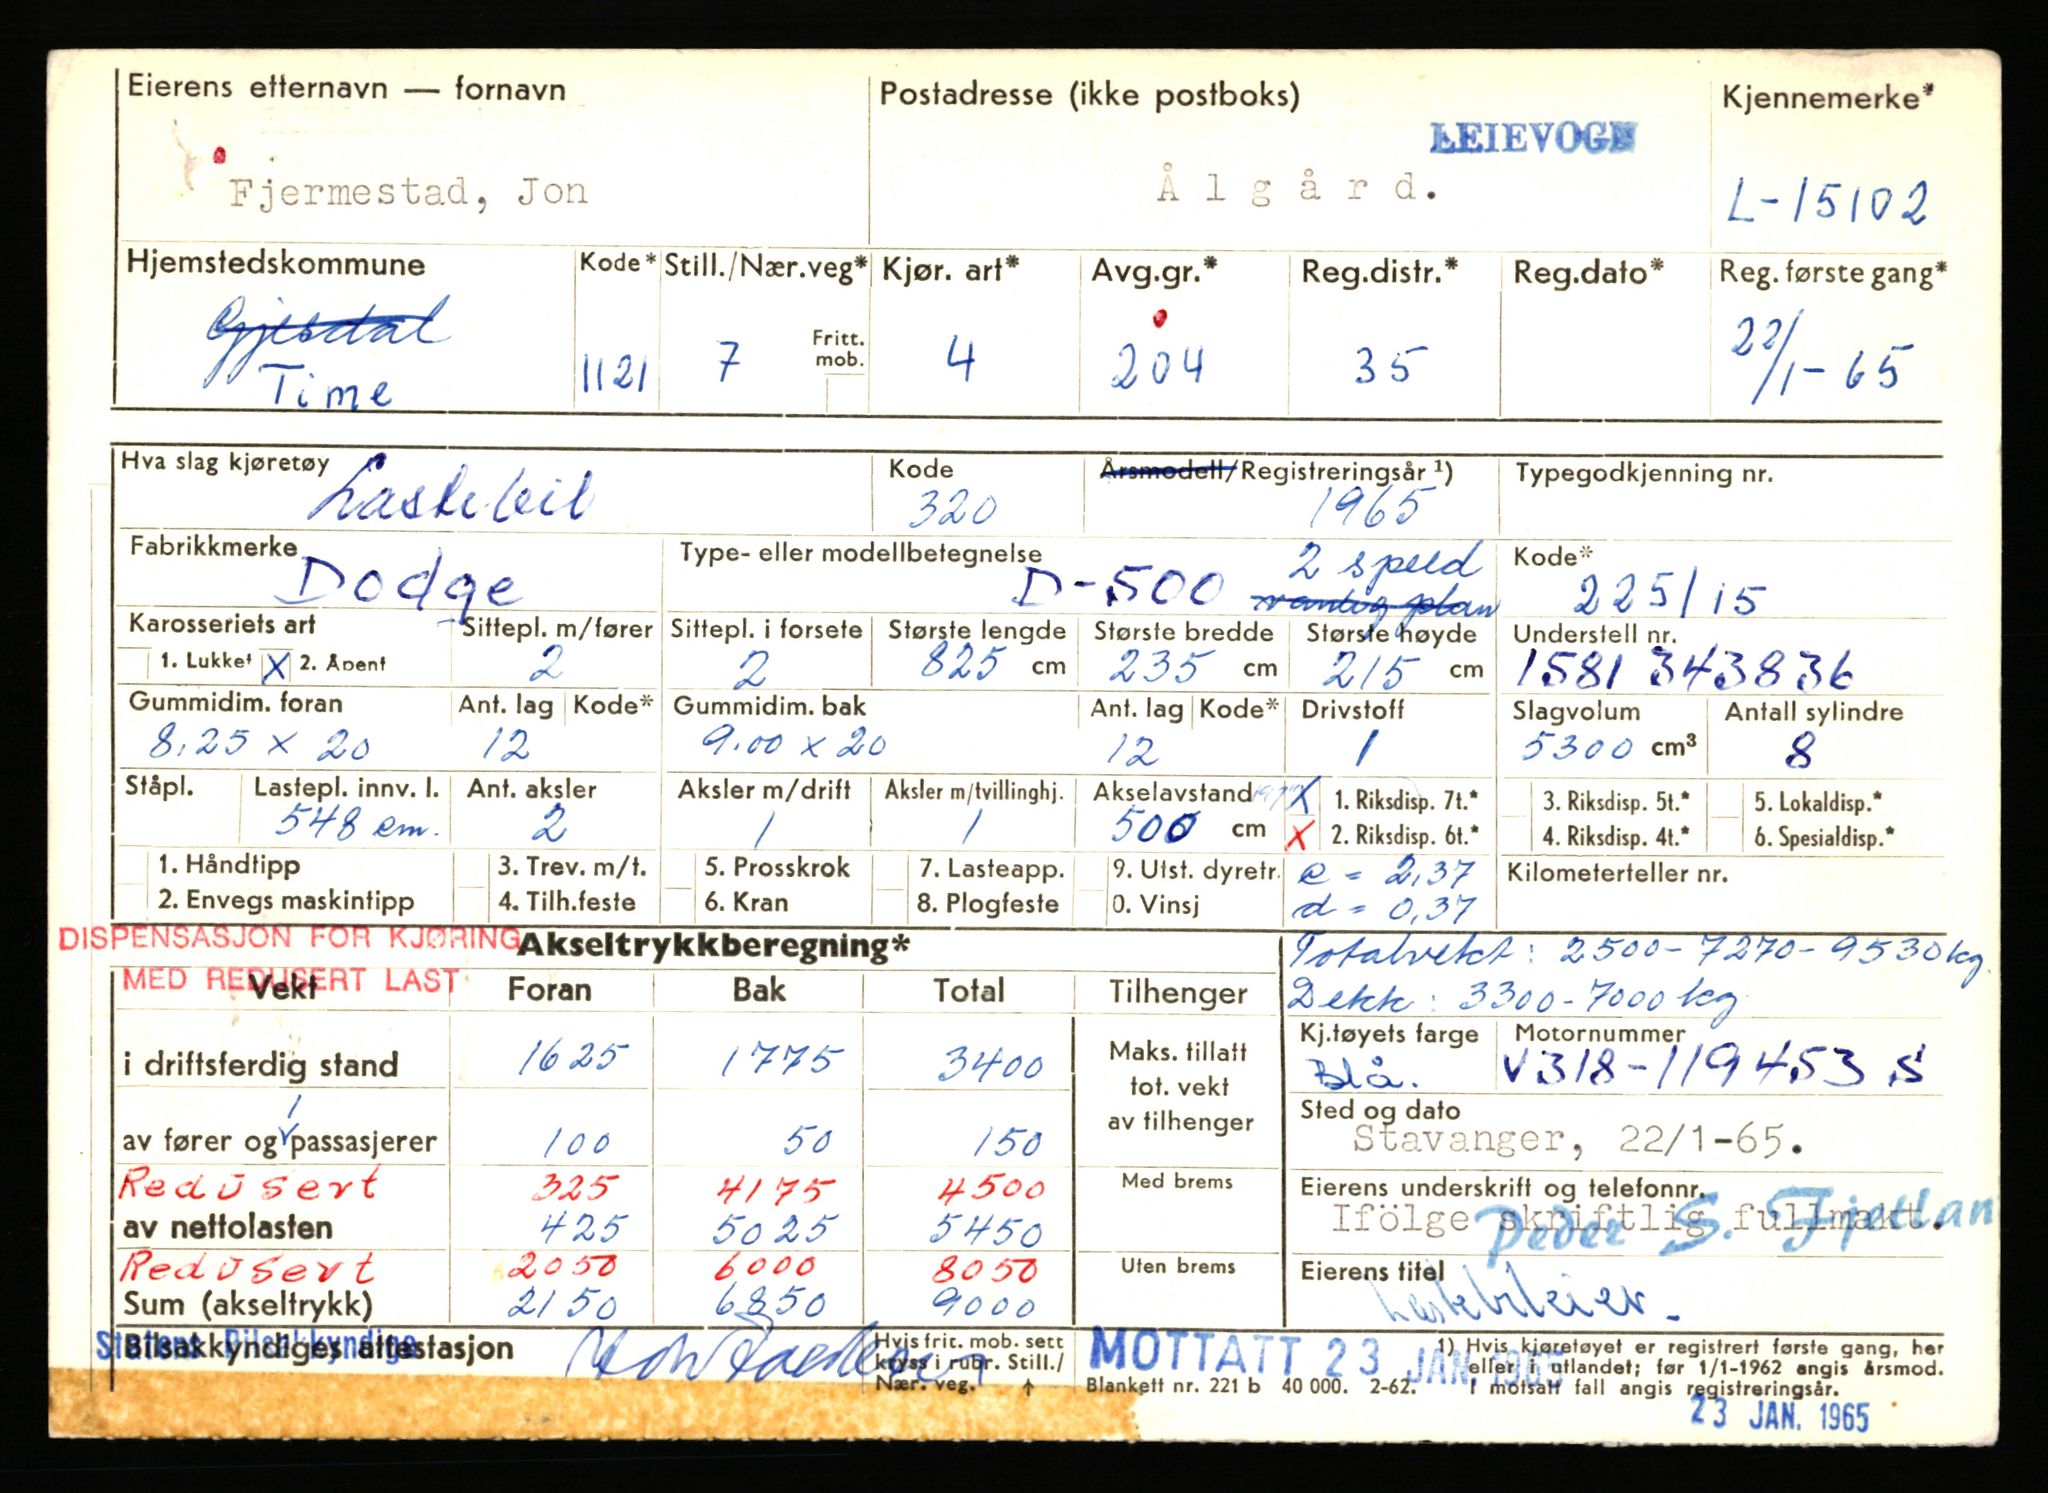 Eierens etternavn — fornavn Postadresse (ikke postboks) Kjennemerke*
LEIEVOGN
Fjermestad, Jon Ålgård. L-15102
Hjemstedskommune Kode* Still./Nær.veg* Kjør. art* Avg.gr.* Reg.distr.* Reg.dato* Reg. første gang*
Gjesdal Fritt. mob.
Time 1121 7 4 204 35 22/1-65
Hva slag kjøretøy Kode Årsmodell/Registreringsår 1) Typegodkjenning nr.
Lastebil 320 1965
Fabrikkmerke Type- eller modellbetegnelse Kode*
Dodge D-500 2 speed vanlig plan 225/15
Karosseriets art Sittepl. m/fører Sittepl. i forsete Største lengde Største bredde Største høyde Understell nr.
1. Lukket X 2. Åpent 2 2 825 cm 235 cm 215 cm 1581343836
Gummidim. foran Ant. lag Kode* Gummidim. bak Ant. lag Kode* Drivstoff Slagvolum Antall sylindre
8.25 x 20 12 9.00 x 20 12 1 5300 cm³ 8
Ståpl. Lastepl. innv. l. Ant. aksler Aksler m/drift Aksler m/tvillinghj. Akselavstand X 1. Riksdisp. 7t.* 3. Riksdisp. 5t.* 5. Lokaldisp.*
548 cm. 2 1 1 500 cm X 2. Riksdisp. 6t.* 4. Riksdisp. 4t.* 6. Spesialdisp.*
1. Håndtipp 3. Trev. m/t. 5. Prosskrok 7. Lasteapp. 9. Utst. dyretr. e = 2,37 Kilometerteller nr.
2. Envegs maskintipp 4. Tilh.feste 6. Kran 8. Plogfeste 0. Vinsj d = 0,37
DISPENSASJON FOR KJØRING Akseltrykkberegning* Totalvekt: 2500-7270-9530 kg.
MED REDUSERT LAST
Vekt Foran Bak Total Tilhenger Dekk: 3300-7000 kg
Kj.tøyets farge Motornummer
i driftsferdig stand 1625 1775 3400 Maks. tillatt tot. vekt av tilhenger Blå. V318-119453 S
Sted og dato
av fører og 1 passasjerer 100 50 150 Stavanger, 22/1-65.
Redusert 325 4175 4500 Med brems Eierens underskrift og telefonnr.
av nettolasten 425 5025 5450 Ifölge skriftlig fullmakt.
Peder S. Fjetlan
Redusert 2050 6000 8050 Uten brems Eierens titel
Sum (akseltrykk) 2150 6850 9000 Lastebileier.
Statens Bilsakkyndige
Bilsakkyndiges attestasjon Hvis frit. mob. sett kryss i rubr. Still./ Nær. veg. ↑ MOTTATT 23 JAN. 1965
1) Hvis kjøretøyet er registrert første gang, her
eller i utlandet; før 1/1-1962 angis årsmod.
Blankett nr. 221 b 40 000. 2-62. I motsatt fall angis registreringsår.
23 JAN. 1965